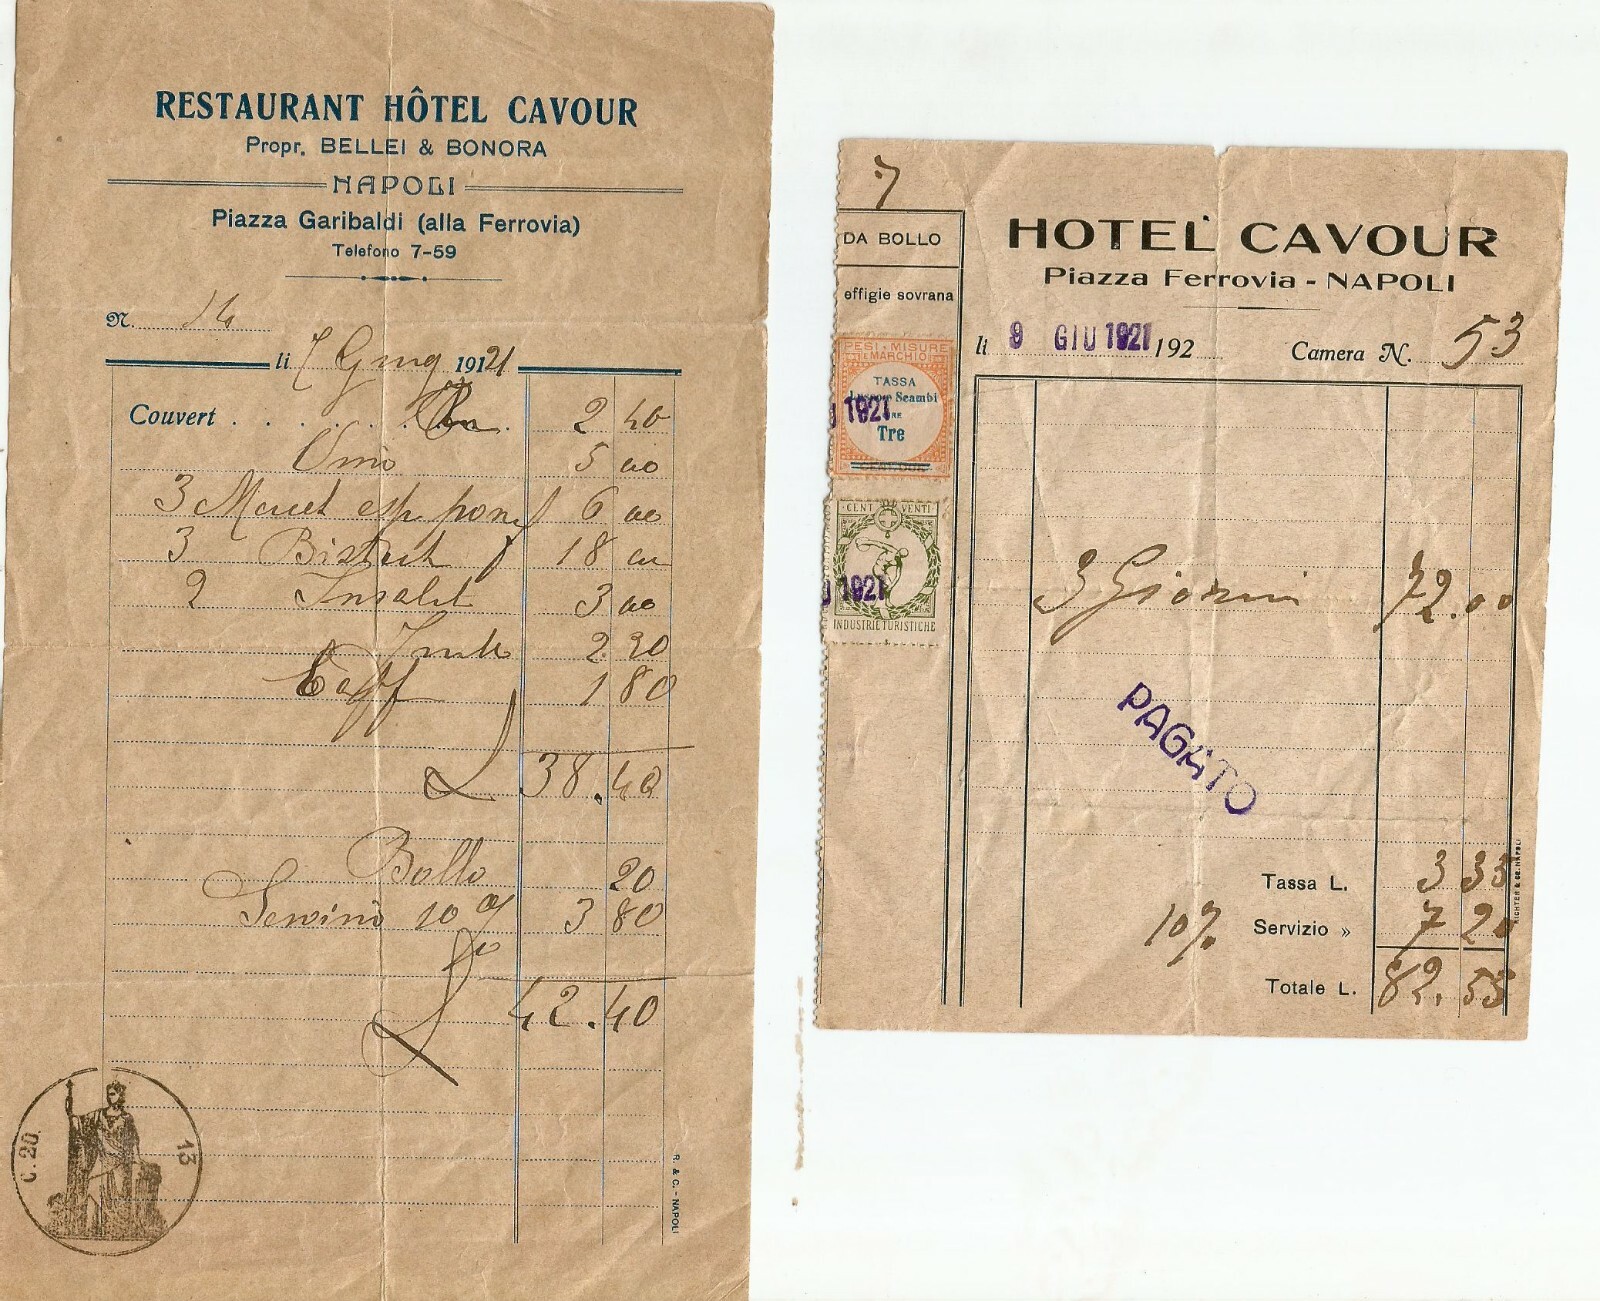 RESTAURANT HÔTEL CAVOUR
Propr. BELLEI & BONORA
NAPOLI
Piazza Garibaldi (alla Ferrovia)
Telefono 7-59
N. 14
li 7 Giug 1921
Couvert 2 40
Vino 5 00
3 esp 6 00
3 Bistect 18 00
2 Insalat 3 00
2.20
Caff 1 80
L 38.40
Bollo 20
Servino 10 % 3 80
L 42.40
C. 20.
13
R. & C. - NAPOLI
7
DA BOLLO
effigie sovrana
PESI E MISURE
E MARCHIO
TASSA
Scambi
Tre
1921
CENT VENTI
1921
INDUSTRIE TURISTICHE
HOTEL CAVOUR
Piazza Ferrovia - NAPOLI
li 9 GIU 1921 192 Camera N. 53
3 Giorni 72.00
PAGATO
Tassa L. 3 35
10% Servizio » 7 20
Totale L. 82.55
RICHTER & CO. NAPOLI